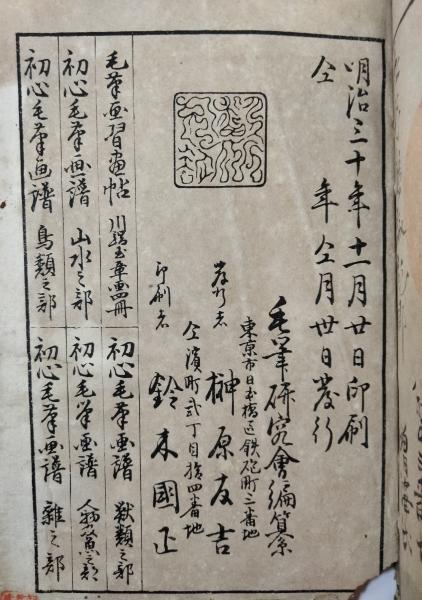 明治三十年十一月廿日印刷
仝　　年仝月卅日発行
毛筆研究會編纂
東京市日本橋区鉄砲町三番地
発行者　榊原友吉
仝濱町弐丁目拾四番地
印刷者　鈴木國正
毛筆画習畫帖　川端玉章画四冊
初心毛筆画譜　獣類之部
初心毛筆画譜　山水之部
初心毛筆画譜　人物之部
初心毛筆画譜　鳥類之部
初心毛筆画譜　雜之部